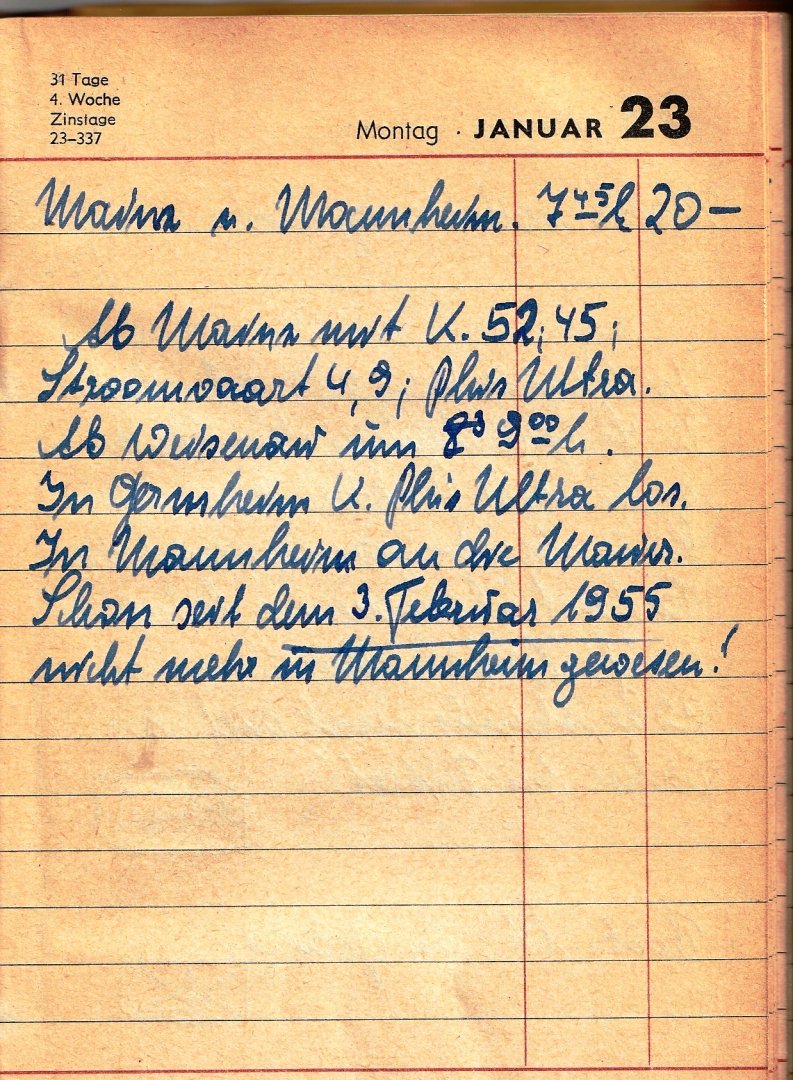 31 Tage
4. Woche
Zinstage
23–337
Montag · JANUAR 23
Mainz u. Mannheim. 7 45 h 20 —
Ab Mainz mit K. 52; 45;
Stroomvaart 4, 9; Plus Ultra.
Ab Weisenau um 9 00 h.
In Gernsheim K. Plus Ultra los.
In Mannheim an die Mauer.
Schon seit dem 3. Februar 1955
nicht mehr in Mannheim gewesen!